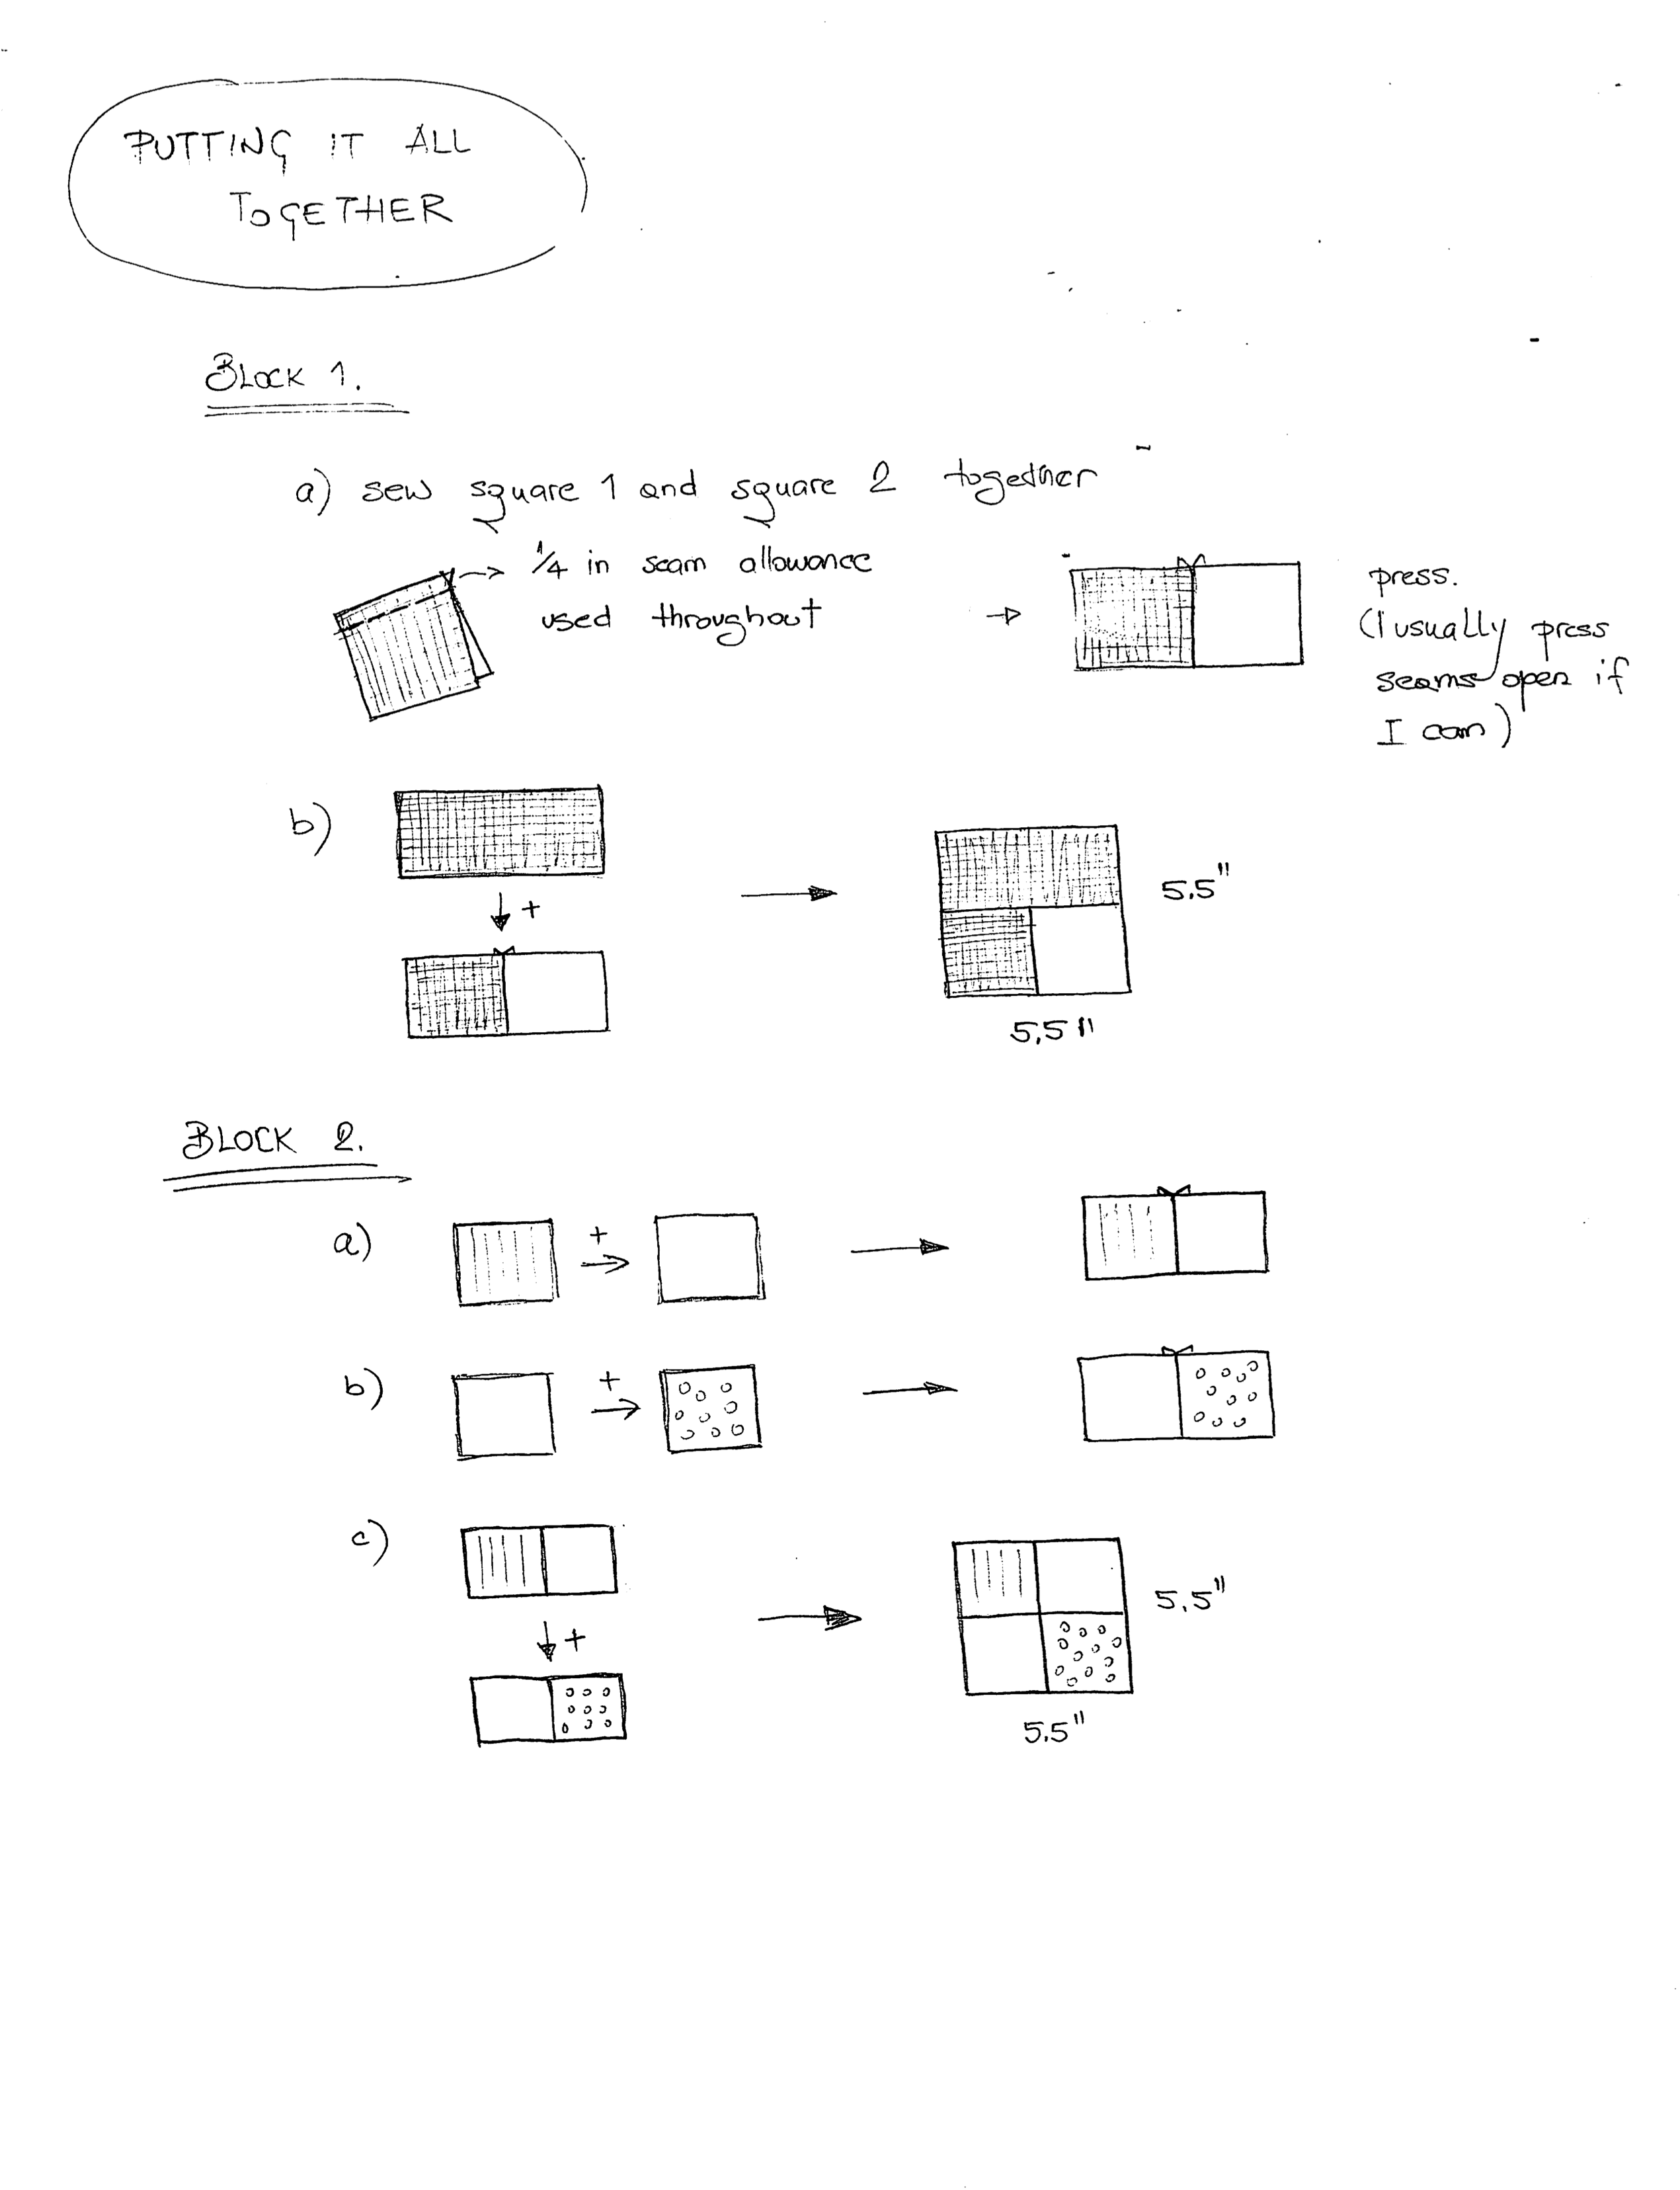 PUTTING IT ALL
TOGETHER
BLOCK 1.
a) sew square 1 and square 2 together
→ 1/4 in seam allowance
used throughout
→
press.
(I usually press
seams open if
I can)
b)
+
5.5"
5.5"
BLOCK 2.
a)
+
b)
+
c)
+
5.5"
5.5"